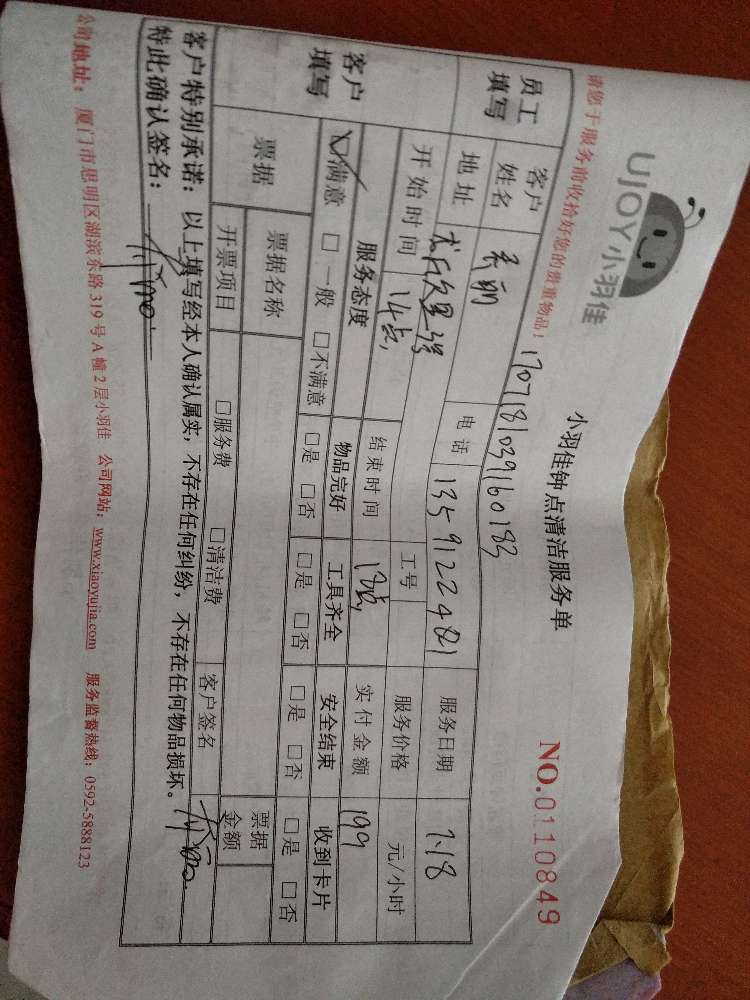 UJOY小羽佳
小羽佳钟点清洁服务单
NO.0110849
请您于服务前收拾好您的贵重物品!
1707181039160183
员工填写 客户姓名 电话 服务日期 7.18
地址 工号 服务价格 元/小时
开始时间 14点 结束时间 18点 实付金额 199
客户填写 服务态度 物品完好 工具齐全 安全结束 收到卡片
满意 □一般 □不满意 □是 □否 □是 □否 □是 □否 □是 □否
票据 票据名称 票据金额
开票项目 □服务费 □清洁费 客户签名
客户特别承诺:以上填写经本人确认属实,不存在任何纠纷,不存在任何物品损坏。
特此确认签名:
公司地址:厦门市思明区湖滨东路319号A幢2层小羽佳 公司网站:www.xiaoyujia.com 服务监督热线:0592-5888123